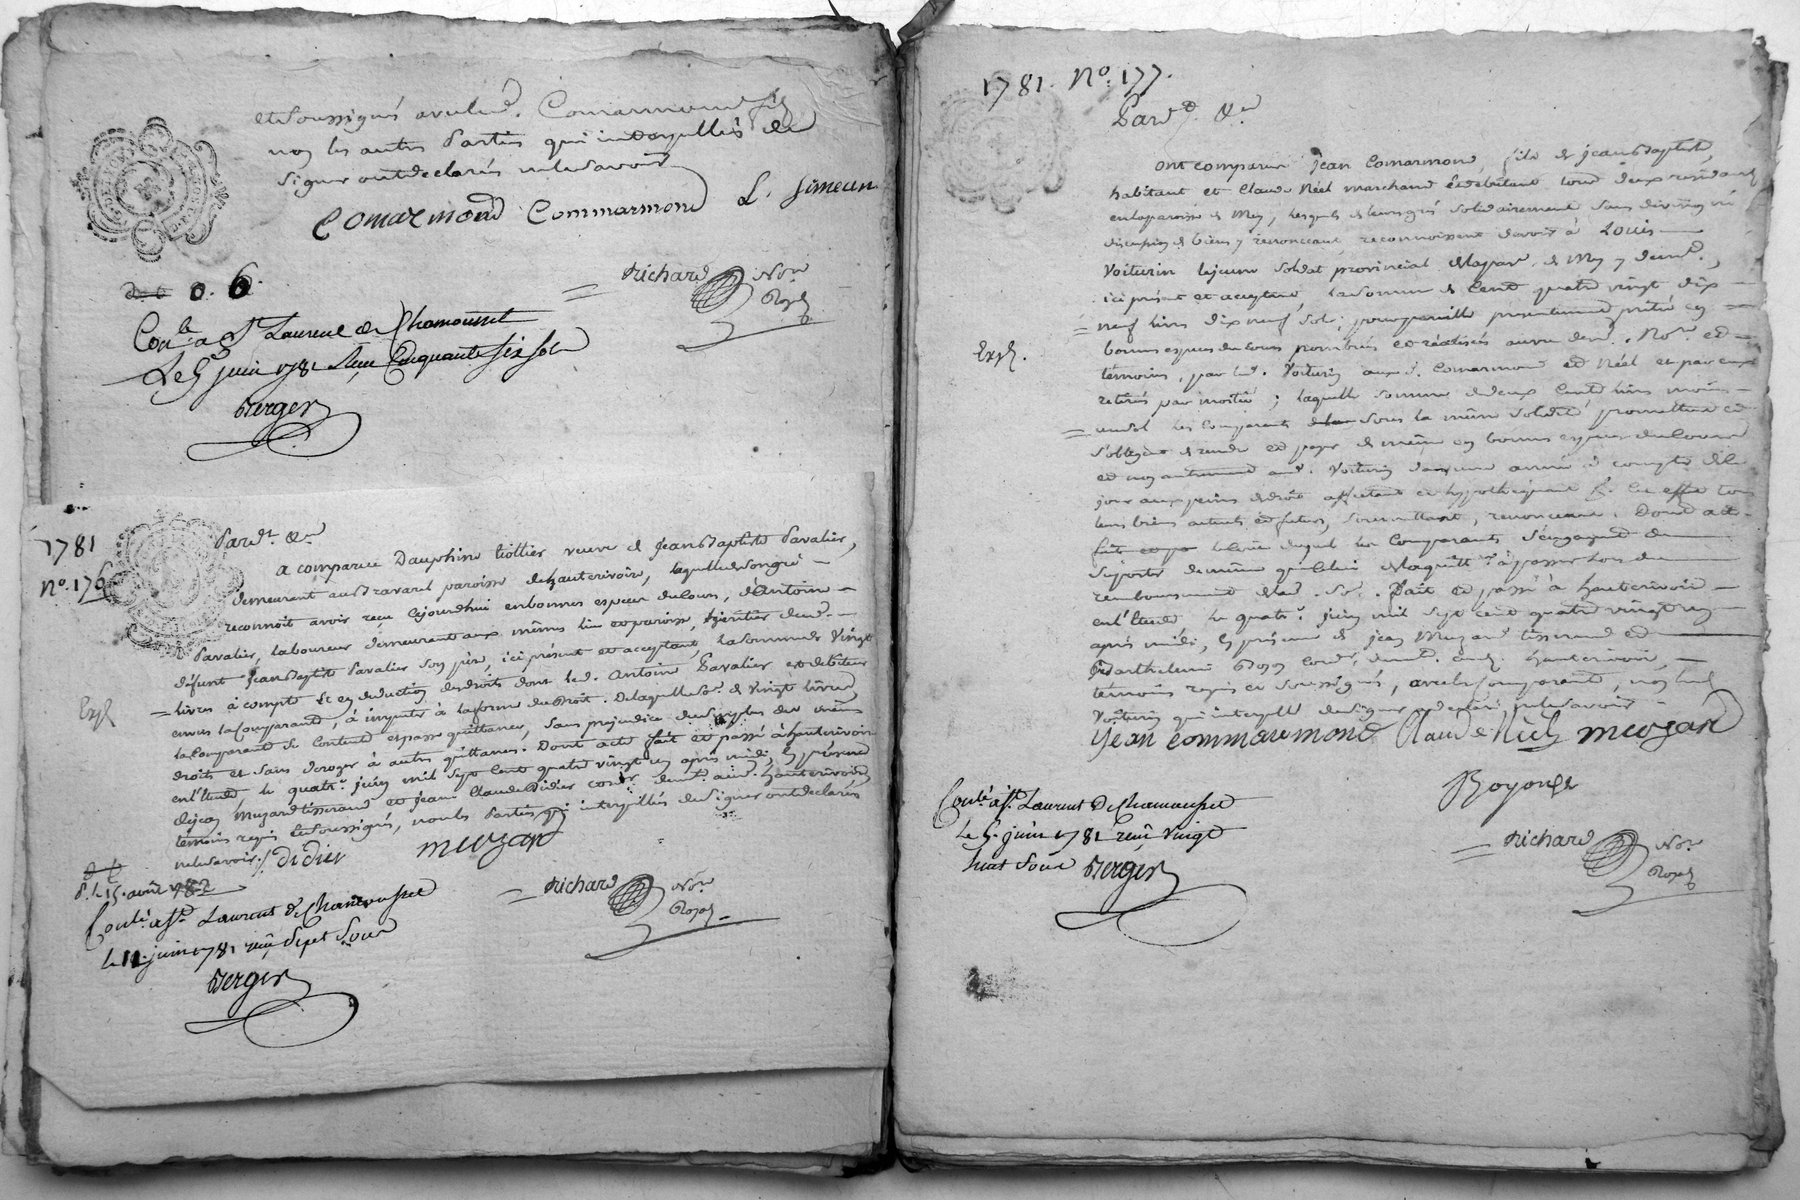 et soussignés avec led. Comarmond fils
non les autres Parties qui interpellés de
signer ont declarés ne le savoir
Comarmond Commarmond L. simeun
0. 6.
Richard Nore Royal
Conle. a St Laurent de Chamousset
Le 5 juin 1781 Reçu Cinquante six sols
Berger
1781
No. 176
Pardt. &a
a comparue Dauphine tiollier veuve de Jean Baptiste Pavalier,
demeurant au Travard paroisse de hauterivoire, laquelle de son gré
reconnoit avoir reçu cejourdhui en bonnes especes du cours, d'Antoine
Pavalier, laboureur demeurant aux mêmes lieu et paroisse, heritier de
défunt Jean Baptiste Pavalier son père, ici présent et acceptant, la somme de Vingt
Expé
livres à compte et en deduction des droits dont led. Antoine Pavalier est debiteur
envers la Comparante, à imputer à la forme du Droit. De laquelle So. de Vingt livres
la Comparante se contente et passe quittance, sans prejudice du surplus de ses mêmes
droits et sans deroger à autres quittances. Dont acte fait et passé à hauterivoire
en l'étude le quatre. juin mil sept cent quatre vingt un après midi, En présence
de jean Muzard tisserand et jean Claude Didier cordr. demt. aud. hauterivoire,
témoins requis et soussignés, non les Parties qui interpellés de signer ont declarés
ne le savoir ./. didier meozar
le 15. avril 1782
Conle. a St. Laurent de Chamousset
le 11. juin 1781 reçu Sept Sous
Berger
Richard Nore Royal
1781. No. 177.
Pard. &a
Ont comparu Jean Comarmond, fils de jean Baptiste,
habitant et Claude Néel marchand cédebitant tous deux résidant
en la paroisse de Mey, lesquels de leurs gré solidairement sans division ni
discussion de biens y renonceant, reconnoissent devoir à Louis
Voiturin le jeune soldat provincial de la par. de Mey y demt.,
ici présent et acceptant, la somme de Cent quatre vingt dix
neuf livres dix neuf sols, pour pareille presentement prêtée en
Expé.
bonnes especes du cours nombrés et réalisés au vu de Nore. et
témoins, par led. Voiturin auxd. Comarmond et Néel et par eux
retirés par moitié ; laquelle somme de deux Cents livres moins
un sol les Comparants sous la même solidité promettent et
s'obligent de rendre et payer de même en bonnes especes du cours
et non autrement aud. Voiturin dans une année à compter de ce
jour aux peines de droit affectant et hypothéquant pr. cet effet tous
leurs biens actuels et futurs, soumettant, renonceant. Dont acte
duquel les Comparants s'engagent
de même que celui de la quittce. à passer lors du
remboursement de lad. So. Fait et passé à hauterivoire
en l'étude le quatre. juin mil sept cent quatre vingt un
après midi, En présence de jean Muzard tisserand et
Barthelemi Boyon cordr. demt. aud. hauterivoire,
témoins requis et soussignés, avec les Comparants, non led.
Voiturin qui interpellé de signer a declaré ne le savoir
Jean Commarmond Claude Néel meozar
Boyon
Conlé. a St. Laurent de Chamousset
le 5. juin 1781 reçu Vingt
huit Sous Berger
Richard Nore Royal